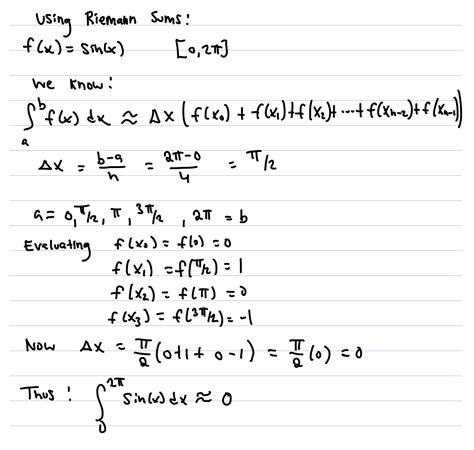 Using Riemann Sums:
f(x) = sin(x) [0,2π]
We know:
∫_a^b f(x) dx ≈ Δx (f(x₀) + f(x₁)+f(x₂)+ ⋯ +f(xₙ₋₂)+f(xₙ₋₁))
Δx = (b-a)/n = (2π-0)/4 = π/2
a = 0, π/2, π, 3π/2, 2π = b
Evaluating f(x₀) = f(0) = 0
f(x₁) = f(π/2) = 1
f(x₂) = f(π) = 0
f(x₃) = f(3π/2) = -1
Now Δx = π/2 (0+1+0-1) = π/2 (0) = 0
Thus: ∫_0^2π sin(x) dx ≈ 0